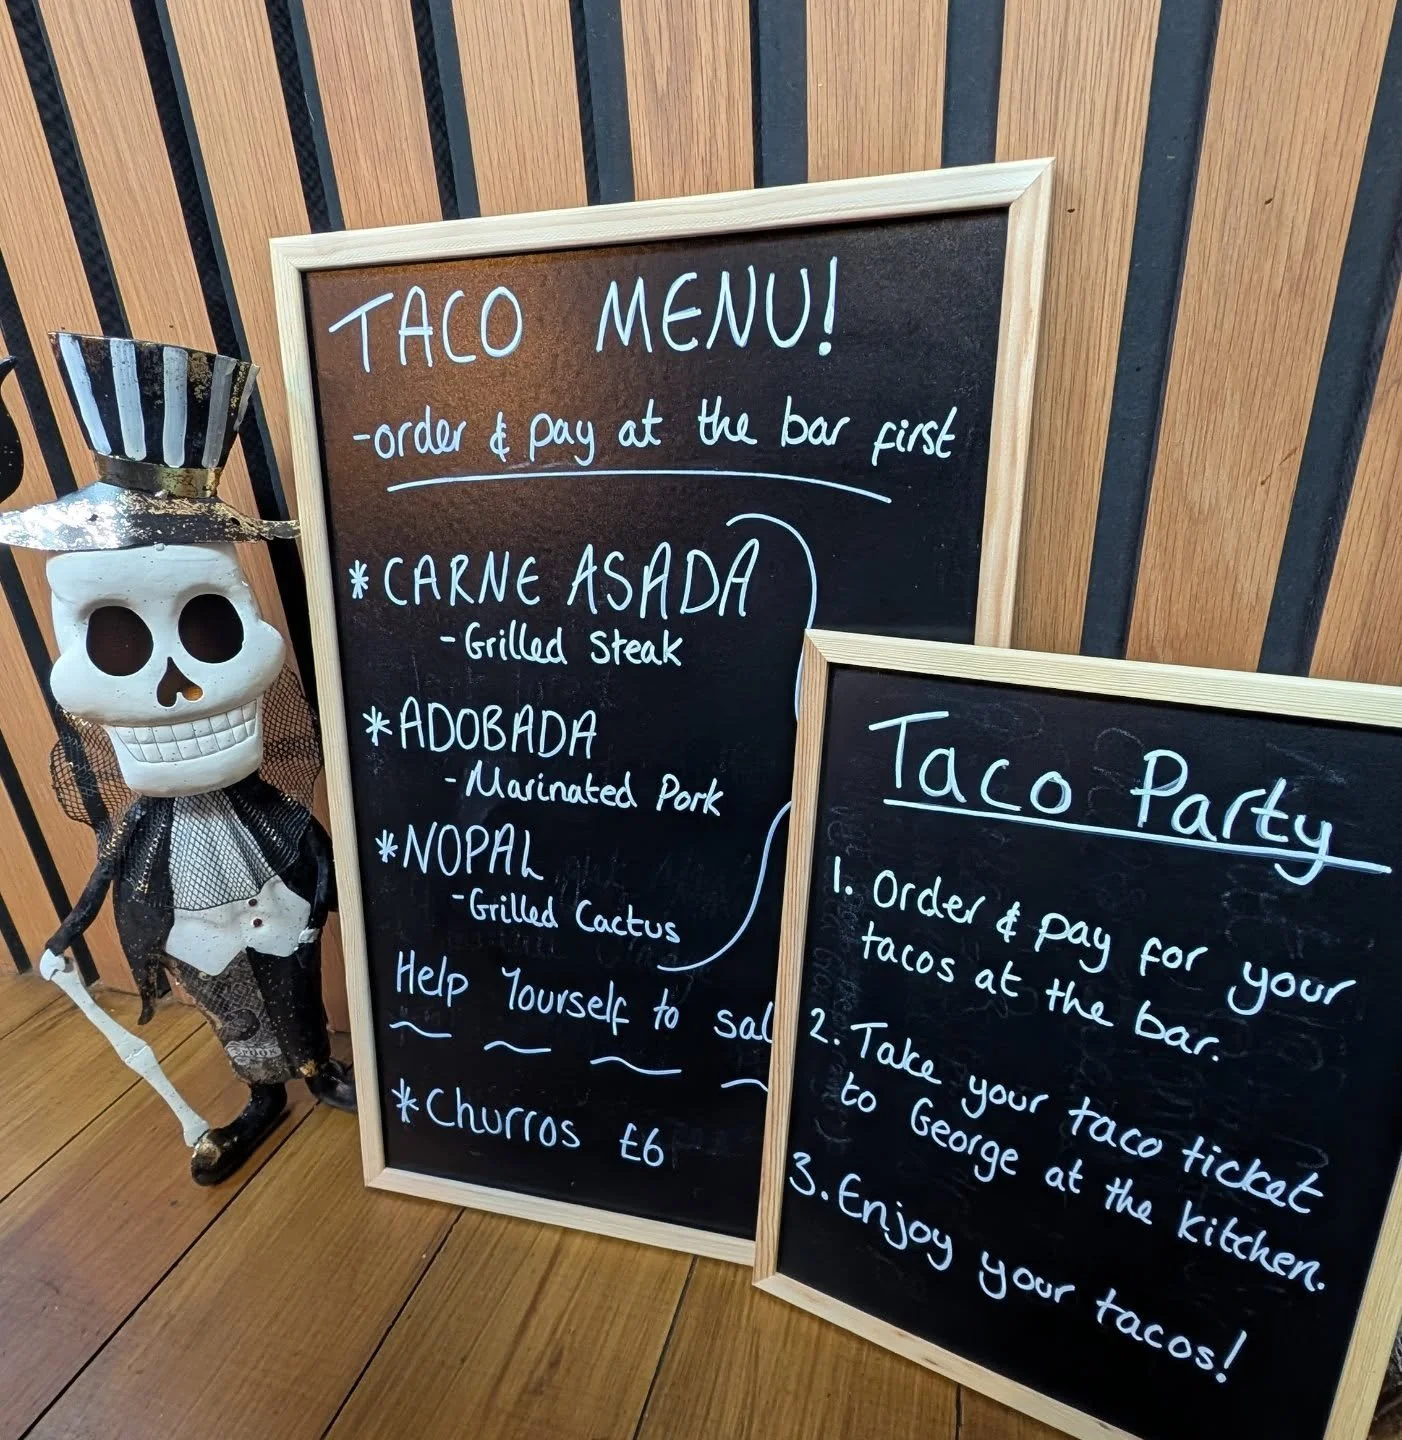 TACO MENU!
-order & pay at the bar first
*CARNE ASADA
-Grilled Steak
*ADOBADA
-Marinated Pork
*NOPAL
-Grilled Cactus
Help Yourself to sal
*Churros £6
Taco Party
1. Order & pay for your
tacos at the bar.
2. Take your taco ticket
to George at the kitchen.
3. Enjoy your tacos!